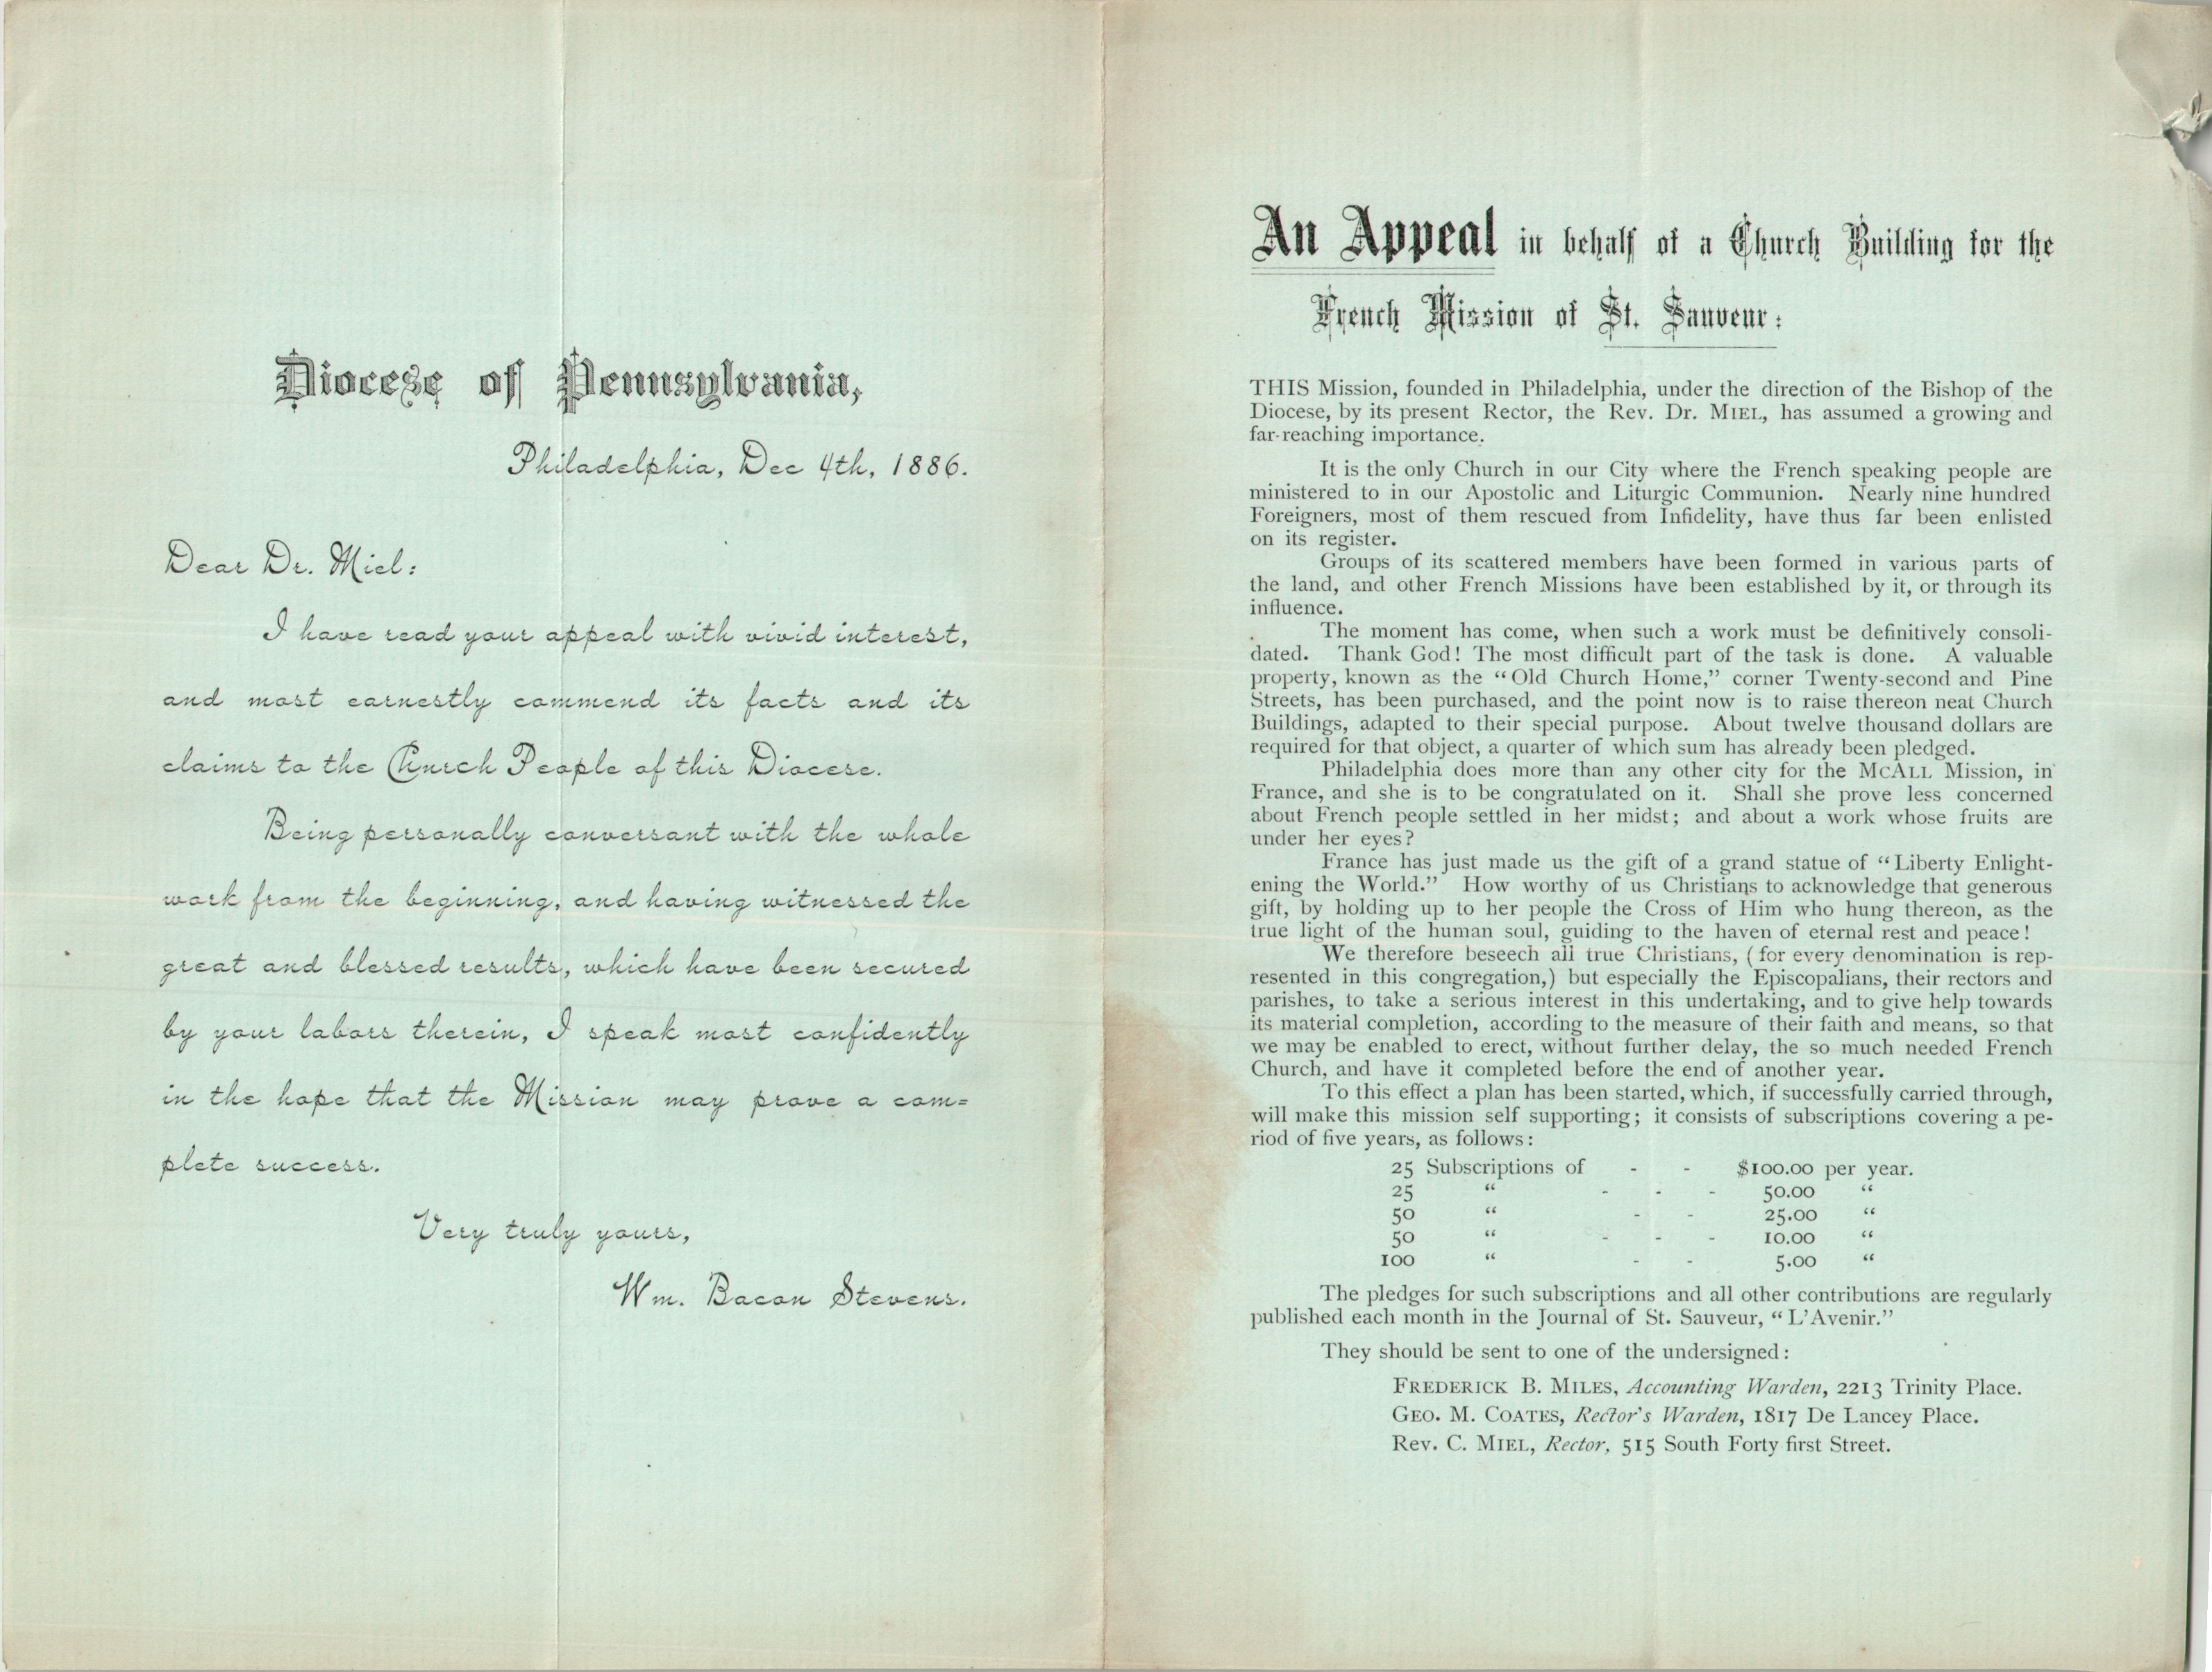 Diocese of Pennsylvania,
Philadelphia, Dec 4th, 1886.
Dear Dr. Miel:
I have read your appeal with vivid interest,
and most earnestly commend its facts and its
claims to the Church People of this Diocese.
Being personally conversant with the whole
work from the beginning, and having witnessed the
great and blessed results, which have been secured
by your labors therein, I speak most confidently
in the hope that the Mission may prove a com=
plete success.
Very truly yours,
Wm. Bacon Stevens.
An Appeal in behalf of a Church Building for the
French Mission of St. Sauveur:
THIS Mission, founded in Philadelphia, under the direction of the Bishop of the
Diocese, by its present Rector, the Rev. Dr. MIEL, has assumed a growing and
far-reaching importance.
It is the only Church in our City where the French speaking people are
ministered to in our Apostolic and Liturgic Communion. Nearly nine hundred
Foreigners, most of them rescued from Infidelity, have thus far been enlisted
on its register.
Groups of its scattered members have been formed in various parts of
the land, and other French Missions have been established by it, or through its
influence.
The moment has come, when such a work must be definitively consoli-
dated. Thank God! The most difficult part of the task is done. A valuable
property, known as the “Old Church Home,” corner Twenty-second and Pine
Streets, has been purchased, and the point now is to raise thereon neat Church
Buildings, adapted to their special purpose. About twelve thousand dollars are
required for that object, a quarter of which sum has already been pledged.
Philadelphia does more than any other city for the MCALL Mission, in
France, and she is to be congratulated on it. Shall she prove less concerned
about French people settled in her midst; and about a work whose fruits are
under her eyes?
France has just made us the gift of a grand statue of “Liberty Enlight-
ening the World.” How worthy of us Christians to acknowledge that generous
gift, by holding up to her people the Cross of Him who hung thereon, as the
true light of the human soul, guiding to the haven of eternal rest and peace!
We therefore beseech all true Christians, (for every denomination is rep-
resented in this congregation,) but especially the Episcopalians, their rectors and
parishes, to take a serious interest in this undertaking, and to give help towards
its material completion, according to the measure of their faith and means, so that
we may be enabled to erect, without further delay, the so much needed French
Church, and have it completed before the end of another year.
To this effect a plan has been started, which, if successfully carried through,
will make this mission self supporting; it consists of subscriptions covering a pe-
riod of five years, as follows:
25 Subscriptions of - - $100.00 per year.
25 “ - - - 50.00 “
50 “ - - 25.00 “
50 “ - - - 10.00 “
100 “ - - 5.00 “
The pledges for such subscriptions and all other contributions are regularly
published each month in the Journal of St. Sauveur, “L’Avenir.”
They should be sent to one of the undersigned:
FREDERICK B. MILES, Accounting Warden, 2213 Trinity Place.
GEO. M. COATES, Rector's Warden, 1817 De Lancey Place.
Rev. C. MIEL, Rector, 515 South Forty first Street.